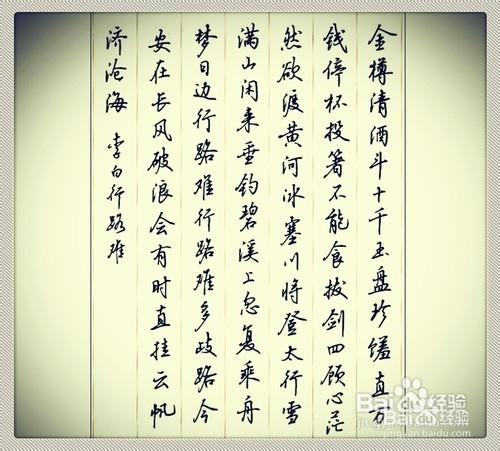 金樽清酒斗十千玉盘珍馐直万
钱停杯投箸不能食拔剑四顾心茫
然欲渡黄河冰塞川将登太行雪
满山闲来垂钓碧溪上忽复乘舟
梦日边行路难行路难多歧路今
安在长风破浪会有时直挂云帆
济沧海 李白行路难
Baidu经验
jingyan.baidu.com